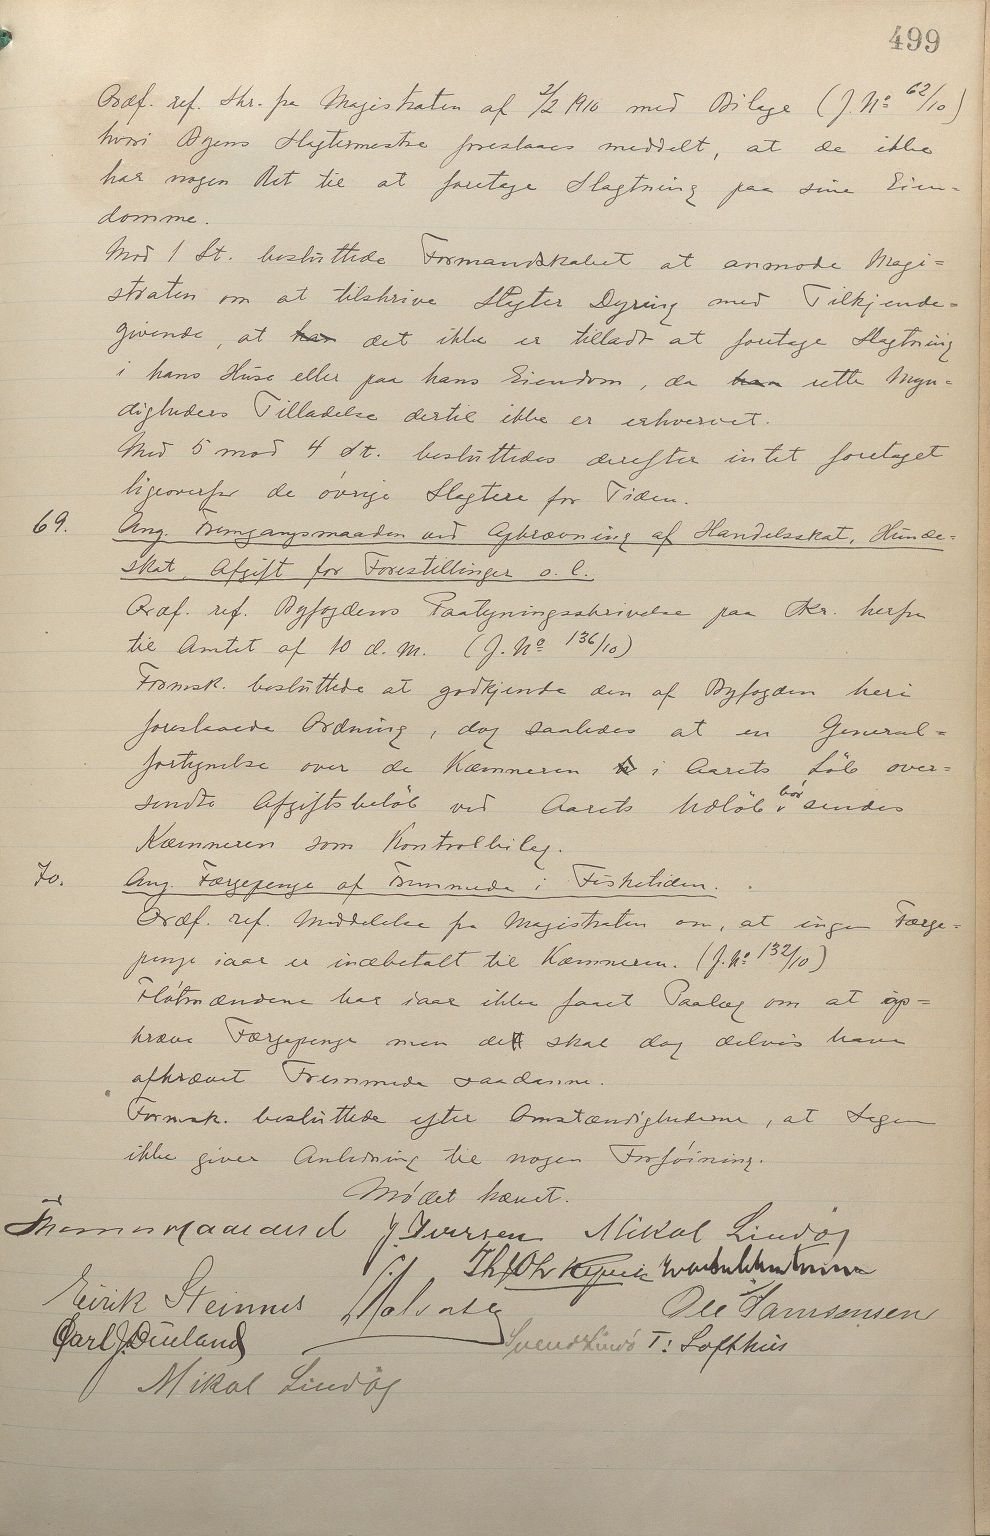 499
Ordf. ref. Skr. fra Magistraten af 2/2 1910 med Bilage (J. No 62/10)
hvori Byens Slagtermestre foreslaaes meddelt, at de ikke
har nogen Ret til at foretage Slagtning paa sine Eien=
domme.
Mod 1 St. besluttede Formandskabet at anmode Magi=
straten om at tilskrive Slagter Dyring med Tilkjende=
givende, at han det ikke er tilladt at foretage Slagtning
i hans Huse eller paa hans Eiendom, da han rette Myn=
digheders Tilladelse dertil ikke er erhvervet.
Med 5 mod 4 St. besluttedes derefter intet foretaget
ligeoverfor de øvrige Slagtere for Tiden.
69. Ang. Fremgangsmaaden ved Opkrævning af Handelsskat, Hunde=
skat, Afgift for Forestillinger o. l.
Ordf. ref. Byfogdens Paategningsskrivelse paa Skr. herfra
til Amtet af 10 d. M. (J. No 136/10)
Formsk. besluttede at godkjende den af Byfogden heri
foreslaaede Ordning, dog saaledes at en General=
fortegnelse over de Kæmneren i Aarets Løb over=
sendte Afgiftsbeløb ved Aarets Udløb bør sendes
Kæmneren som Kontrolbilag.
70. Ang. Færgepenge af Fremmede i Fisketiden.
Ordf. ref. Meddelelse fra Magistraten om, at ingen Færge=
penge iaar er indbetalt til Kæmneren. (J. No 132/10)
Fløtmændene har iaar ikke faaet Paalæg om at op=
kræve Færgepenge men det skal dog delvis have
afkrævet Fremmede saadanne.
Formsk. besluttede efter Omstændighederne, at Sagen
ikke giver Anledning til nogen Forføining.
Mødet hævet.
J. Iversen Mikal Lindøy
Eirik Steinnes Halvorsen Ole Samsonsen
Carl J. Dueland Svend Lindø T: Lofthus
Mikal Lindøy